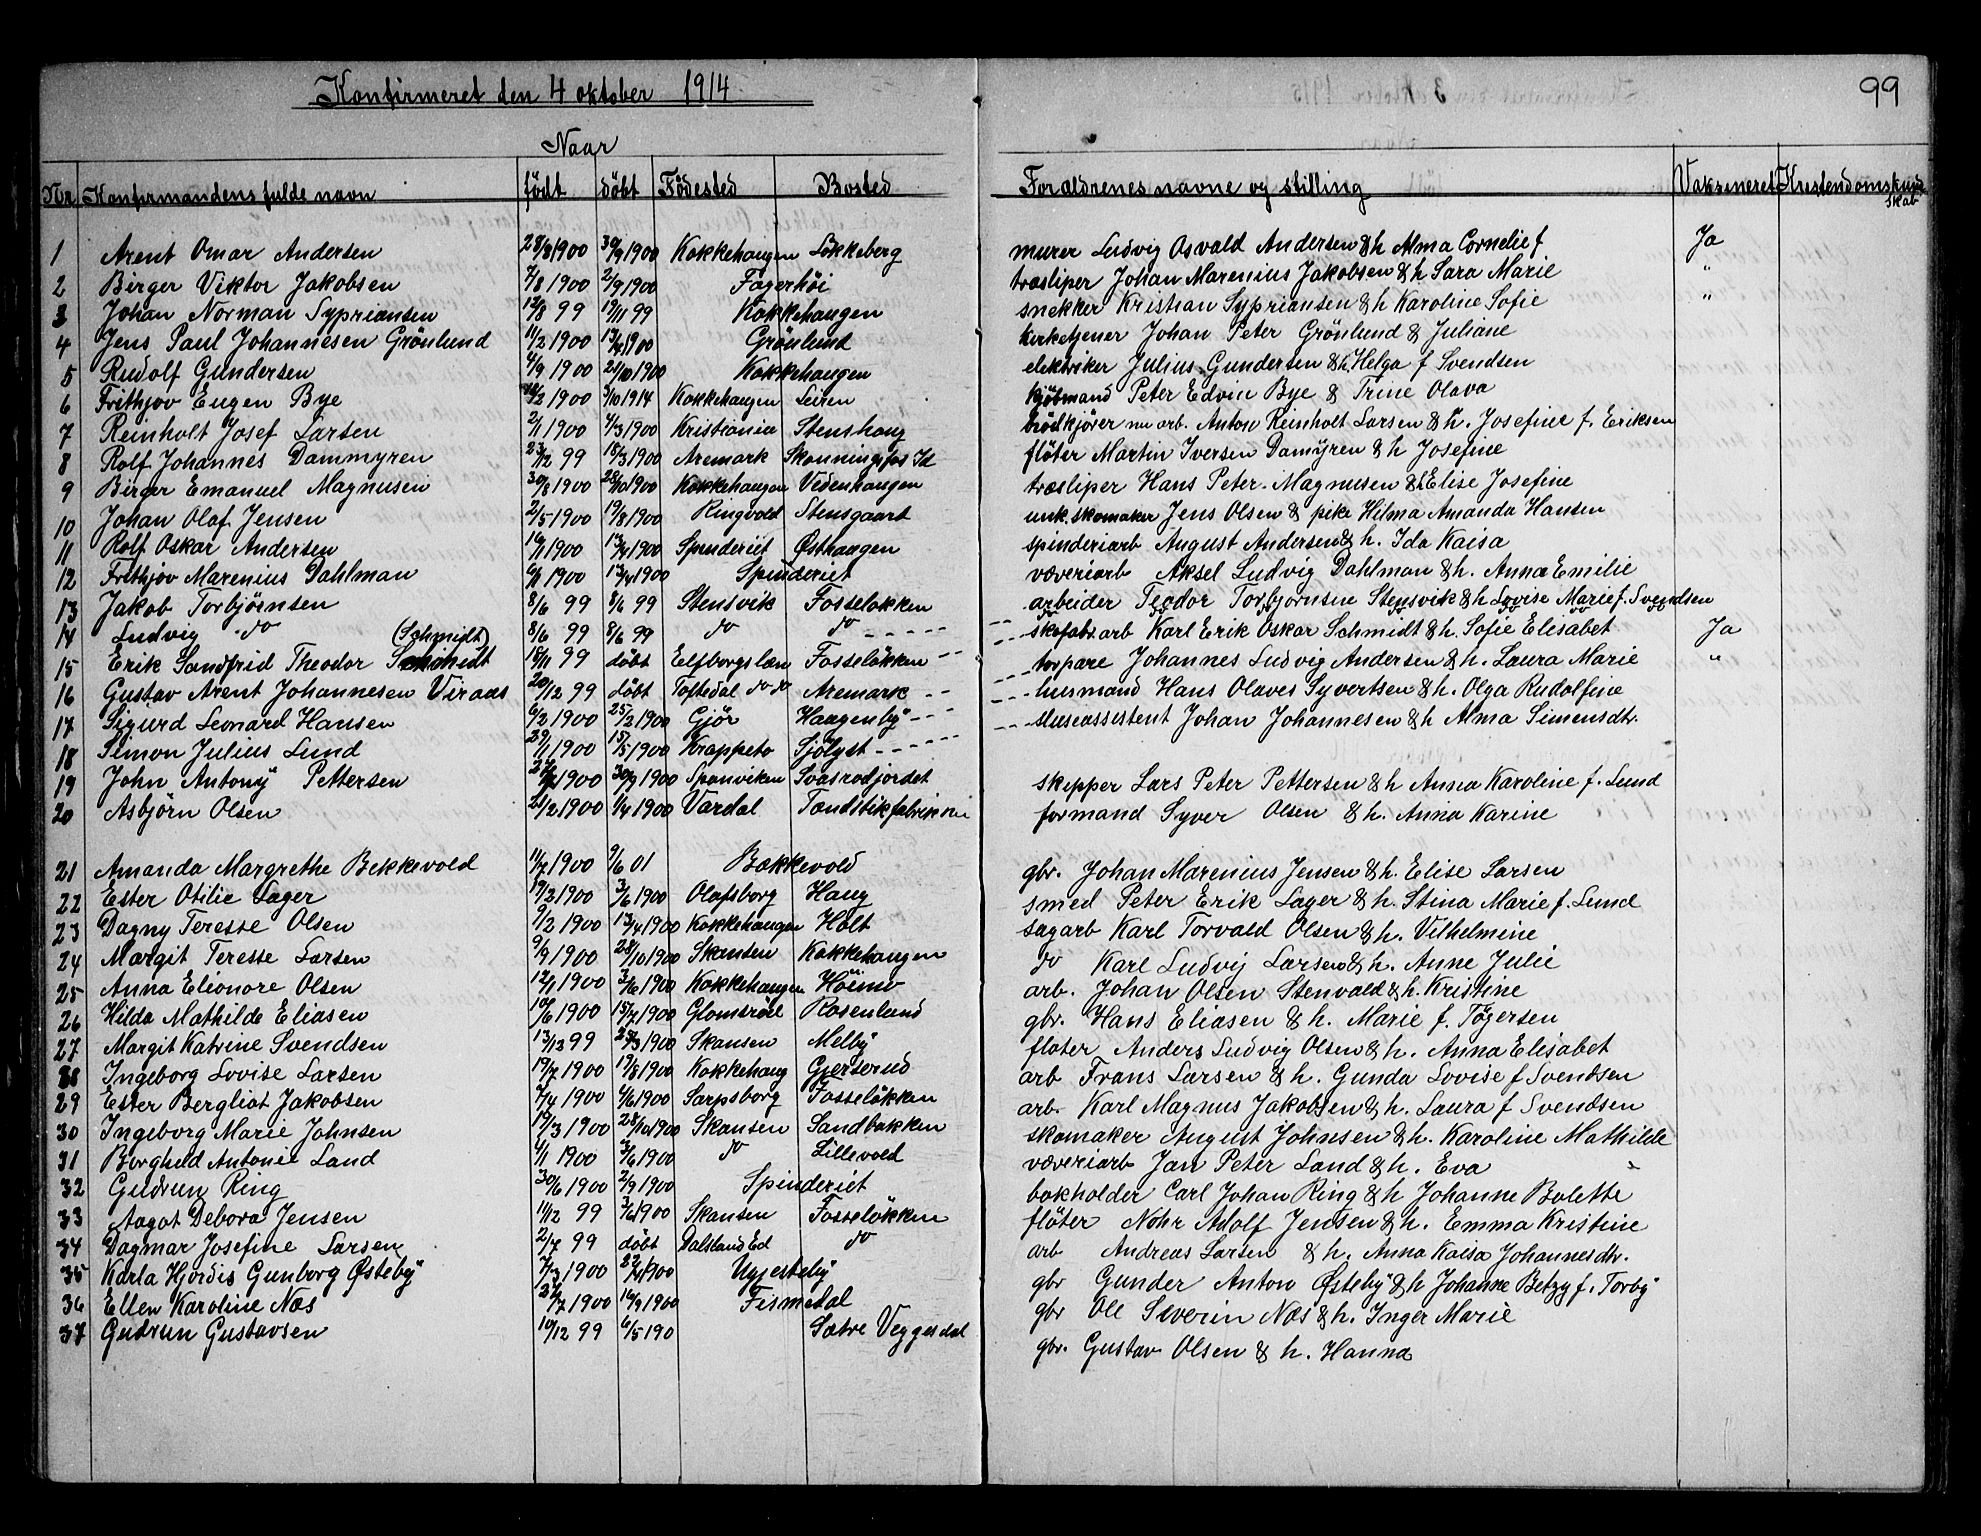 Konfirmeret den 4 oktober 1914
99
Naar
Nr. Konfirmandens fulde navn født döbt Födested Bosted Forældrenes navne og stilling Vaksineret Kristendomskundskab
1 Arent Omar Andersen 28/8 1900 30/9 1900 Kokkehaugen Lökkeberg murer Ludvig Osvald Andersen & h Alma Cornelie f Ja
2 Birger Viktor Jakobsen 7/8 1900 2/9 1900 Fagerhöi træsliper Johan Marenius Jakobsen & h Sara Marie "
3 Johan Norman Sypriansen 12/8 99 19/11 99 Kokkehaugen snekker Kristian Sypriansen & h Karoline Sofie "
4 Jens Paul Johannesen Grönlund 11/2 1900 13/4 1900 Grönlund kirketjener Johan Peter Grönlund & Juliane
5 Rudolf Gundersen 4/9 1900 21/10 1900 Kokkehaugen elektriker Julius Gundersen & h. Helga f Svendsen
6 Frithjov Eugen Bye /2 1900 3/10 1914 Kokkehaugen Leiren kjöbmand Peter Edvin Bye & Trine Olava
7 Reinholt Josef Larsen 2/1 1900 4/3 1900 Kristiania Stenshaug brödkjører nu arb. Anton Reinholt Larsen & h. Josefine f. Eriksen
8 Rolf Johannes Dammyren 23/12 99 18/3 1900 Aremark Skonningsfos Id flöter Martin Iversen Damyren & h Josefine
9 Birger Emanuel Magnusen 30/8 1900 28/10 1900 Kokkehaugen Vedenhaugen træsliper Hans Peter Magnusen & h Elise Josefine
10 Johan Olaf Jensen 2/5 1900 19/8 1900 Ringvold Stensgaart unk. skomaker Jens Olsen & pike Helma Amanda Hansen
11 Rolf Oskar Andersen 16/1 1900 13/4 1900 Spinderiet Østhaugen spinderiarb August Andersen & h. Ida Kaisa
12 Frithjov Marenius Dahlman 6/1 1900 13/4 1900 Spinderiet væveriarb Aksel Ludvig Dahlman & h. Anna Emilie
13 Jakob Torbjörnsen 8/6 99 8/6 99 Stensvik Fosselökken arbeider Teodor Torbjornsen Stensvik & h Lovise Marie f. Svendsen
14 Ludvig do 8/6 99 8/6 99 do do do do do do do
15 Erik Sandfrid Theodor Schmidt (Schmidt) 18/11 99 döbt Elfborgslæn Fosselökken skofabr arb Karl Erik Oskar Schmidt & h. Sofie Elisabet Ja
16 Gustav Arent Johannesen Viraas 20/12 99 döbt Töftedal do do Aremark torpare Johannes Ludvig Andersen & h. Laura Marie "
17 Sigurd Leonard Hansen 6/2 1900 25/2 1900 Gjör Haugenby husmand Hans Olaves Syvertsen & h. Olga Rudolfine
18 Simon Julius Lund 29/1 1900 15/5 1900 Krappeto Sjölyst sluseassistent Johan Johannesen & h Alma Simensdtr.
19 John Antony Pettersen 1900 30/9 1900 Spanviken Svasrodjordet skipper Lars Peter Pettersen & h Anna Karoline f. Lund
20 Asbjörn Olsen 21/2 1900 1/4 1900 Vardal Tændstikfabrikken formand Syver Olsen & h. Anna Karine
21 Amanda Margrethe Bekkevold 11/7 1900 9/6 01 Bækkevold gbr. Johan Marenius Jensen & h. Elise Larsen
22 Ester Otilie Lager 19/2 1900 3/6 1900 Olafsborg Haug smed Peter Erik Lager & h. Stina Marie f. Lund
23 Dagny Teresse Olsen 9/2 1900 13/4 1900 Kokkehaugen Holt sagarb Karl Torvald Olsen & h. Vilhelmine
24 Margit Teresse Larsen 9/9 1900 28/10 1900 Skansen Kokkehaugen do Karl Ludvig Larsen & h. Anne Julie
25 Anna Elionore Olsen 12/1 1900 3/6 1900 Kokkehaugen Höimo arb. Johan Olsen Stenvald & h. Kristine
26 Hilda Mathilde Eliasen 10/6 1900 15/7 1900 Glomsröd Rosenlund gbr. Hans Eliasen & h. Marie f. Tögersen
27 Margit Katrine Svendsen 13/12 99 25/3 1900 Skansen Melby flöter Anders Ludvig Olsen & h. Anna Elisabet
28 Ingeborg Lovise Larsen 19/7 1900 19/8 1900 Kokkehaug Gjerserud arb Frans Larsen & h. Gunda Lovise f Svendsen
29 Ester Bergliot Jakobsen 7/4 1900 4/6 1900 Sarpsborg Fosselökken arb. Karl Magnus Jakobsen & h. Laura f Svendsen
30 Ingeborg Marie Johnsen 19/3 1900 28/10 1900 Skansen Sandbakken skomaker August Johnsen & h. Karoline Mathilde
31 Borghild Antonie Land 4/1 1900 3/6 1900 do Lillevold væveriarb Jan Peter Land & h. Eva
32 Gudrun Ring 30/6 1900 2/9 1900 Spinderiet bokholder Carl Johan Ring & h Johanne Bolette
33 Aagot Debora Jensen 11/12 99 3/6 1900 Skansen Fosselökken flöter Nohr Adolf Jensen & h. Emma Kristine
34 Dagmar Josefine Larsen 2/7 99 döbt Dalsland Ed do arb Andreas Larsen & h. Anna Kaisa Johannesdtr.
35 Karla Hjördis Gunborg Østeby 7/3 1900 22/4 1900 Ugjesteby gbr Gunder Anton Østeby & h Johanne Betzy f. Torby
36 Ellen Karoline Næs 26/7 1900 16/9 1900 Fismedal gbr Ole Severin Næs & h. Inger Marie
37 Gudrun Gustavsen 10/12 99 6/5 190 Sætre Veggesdal gbr. Gustav Olsen & h. Hanna